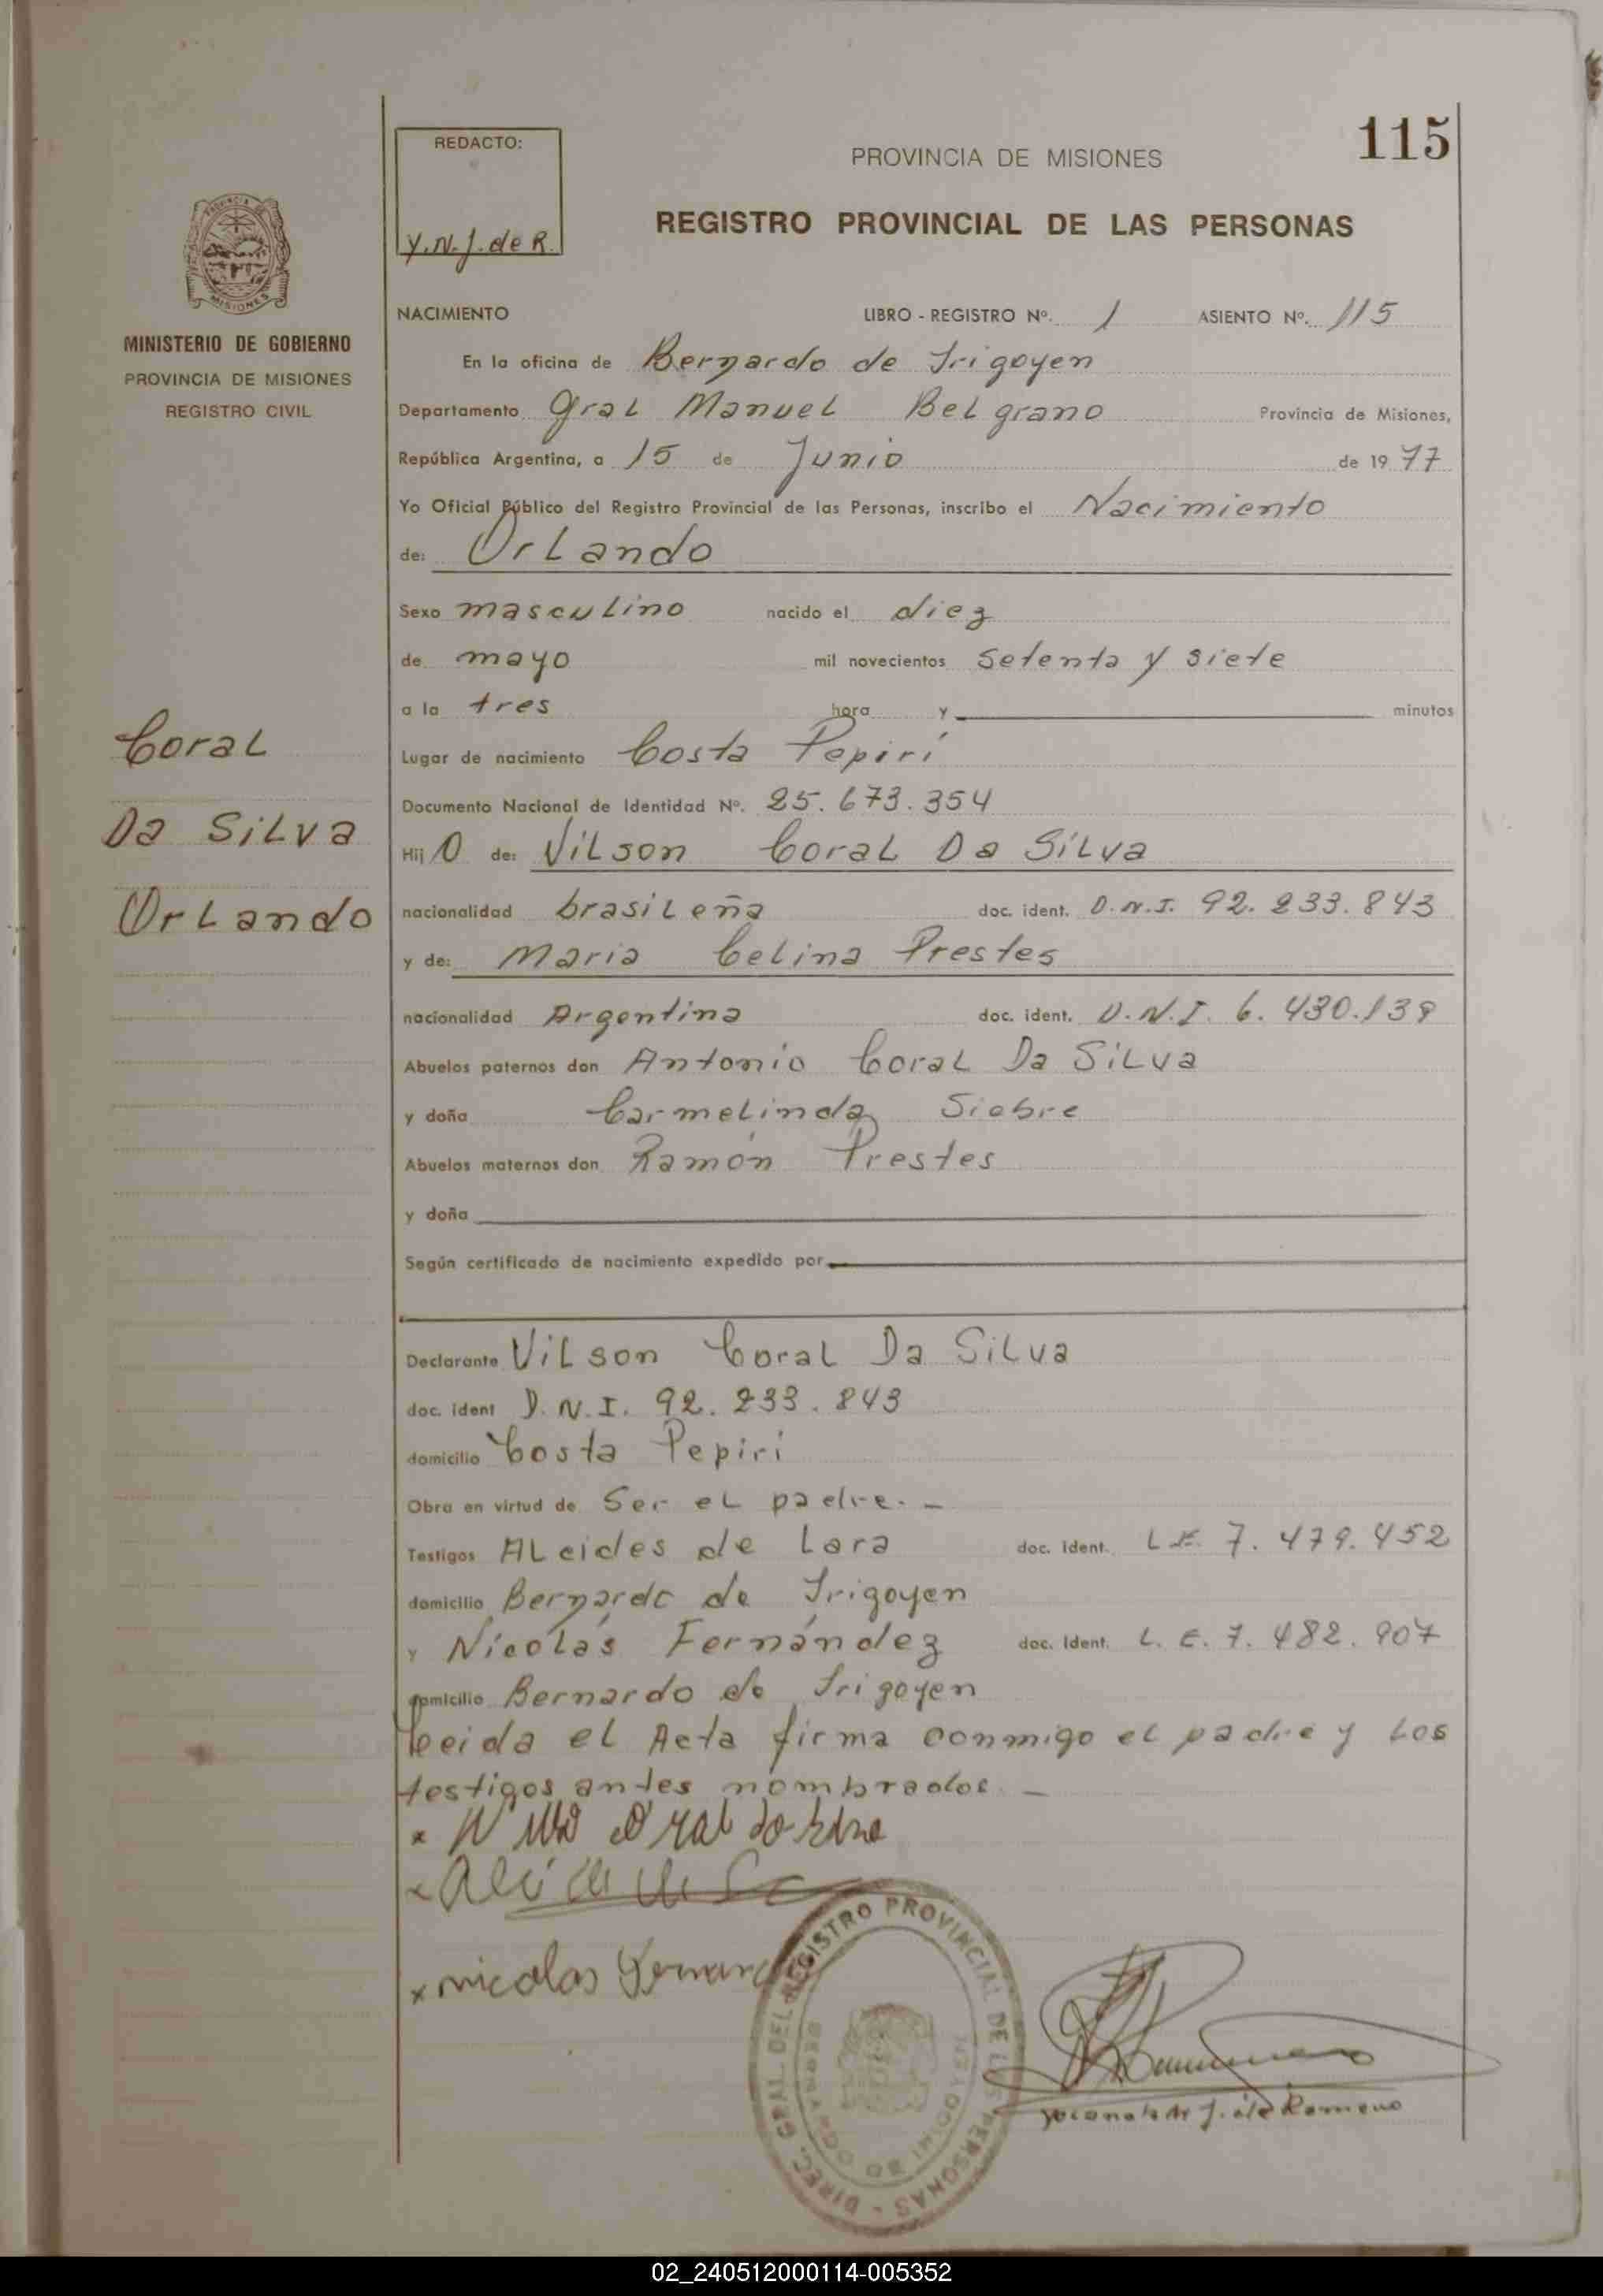 115
REDACTO:
Y.N.J. de R.
PROVINCIA DE MISIONES
REGISTRO PROVINCIAL DE LAS PERSONAS
MINISTERIO DE GOBIERNO
PROVINCIA DE MISIONES
REGISTRO CIVIL
NACIMIENTO LIBRO - REGISTRO Nº. 1 ASIENTO Nº. 115
En la oficina de Bernardo de Irigoyen
Departamento Gral Manuel Belgrano Provincia de Misiones,
República Argentina, a 15 de Junio de 19 77
Yo Oficial Público del Registro Provincial de las Personas, inscribo el Nacimiento
de: Orlando
Sexo masculino nacido el diez
de mayo mil novecientos setenta y siete
a la tres hora y minutos
Coral
Da Silva
Orlando
Lugar de nacimiento Costa Pepirí
Documento Nacional de Identidad Nº. 25.673.354
Hij O de: Vilson Coral Da Silva
nacionalidad brasileña doc. ident. D.N.I. 92.233.843
y de: Maria Celina Prestes
nacionalidad Argentina doc. ident. D.N.I. 6.430.139
Abuelos paternos don Antonio Coral Da Silva
y doña Carmelinda Siebre
Abuelos maternos don Ramón Prestes
y doña
Según certificado de nacimiento expedido por
Declarante Vilson Coral Da Silva
doc. ident D.N.I. 92.233.843
domicilio Costa Pepirí
Obra en virtud de Ser el padre. -
Testigos Alcides de Lara doc. ident. L.E. 7.479.452
domicilio Bernardo de Irigoyen
y Nicolás Fernández doc. ident. L.E. 7.482.907
domicilio Bernardo de Irigoyen
leida el Acta firma conmigo el padre y los
testigos antes nombrados. -
x nicolas
DIREC. GRAL. DEL REGISTRO PROVINCIAL DE LAS PERSONAS
BERNARDO DE IRIGOYEN
J. de Romero
02_240512000114-005352